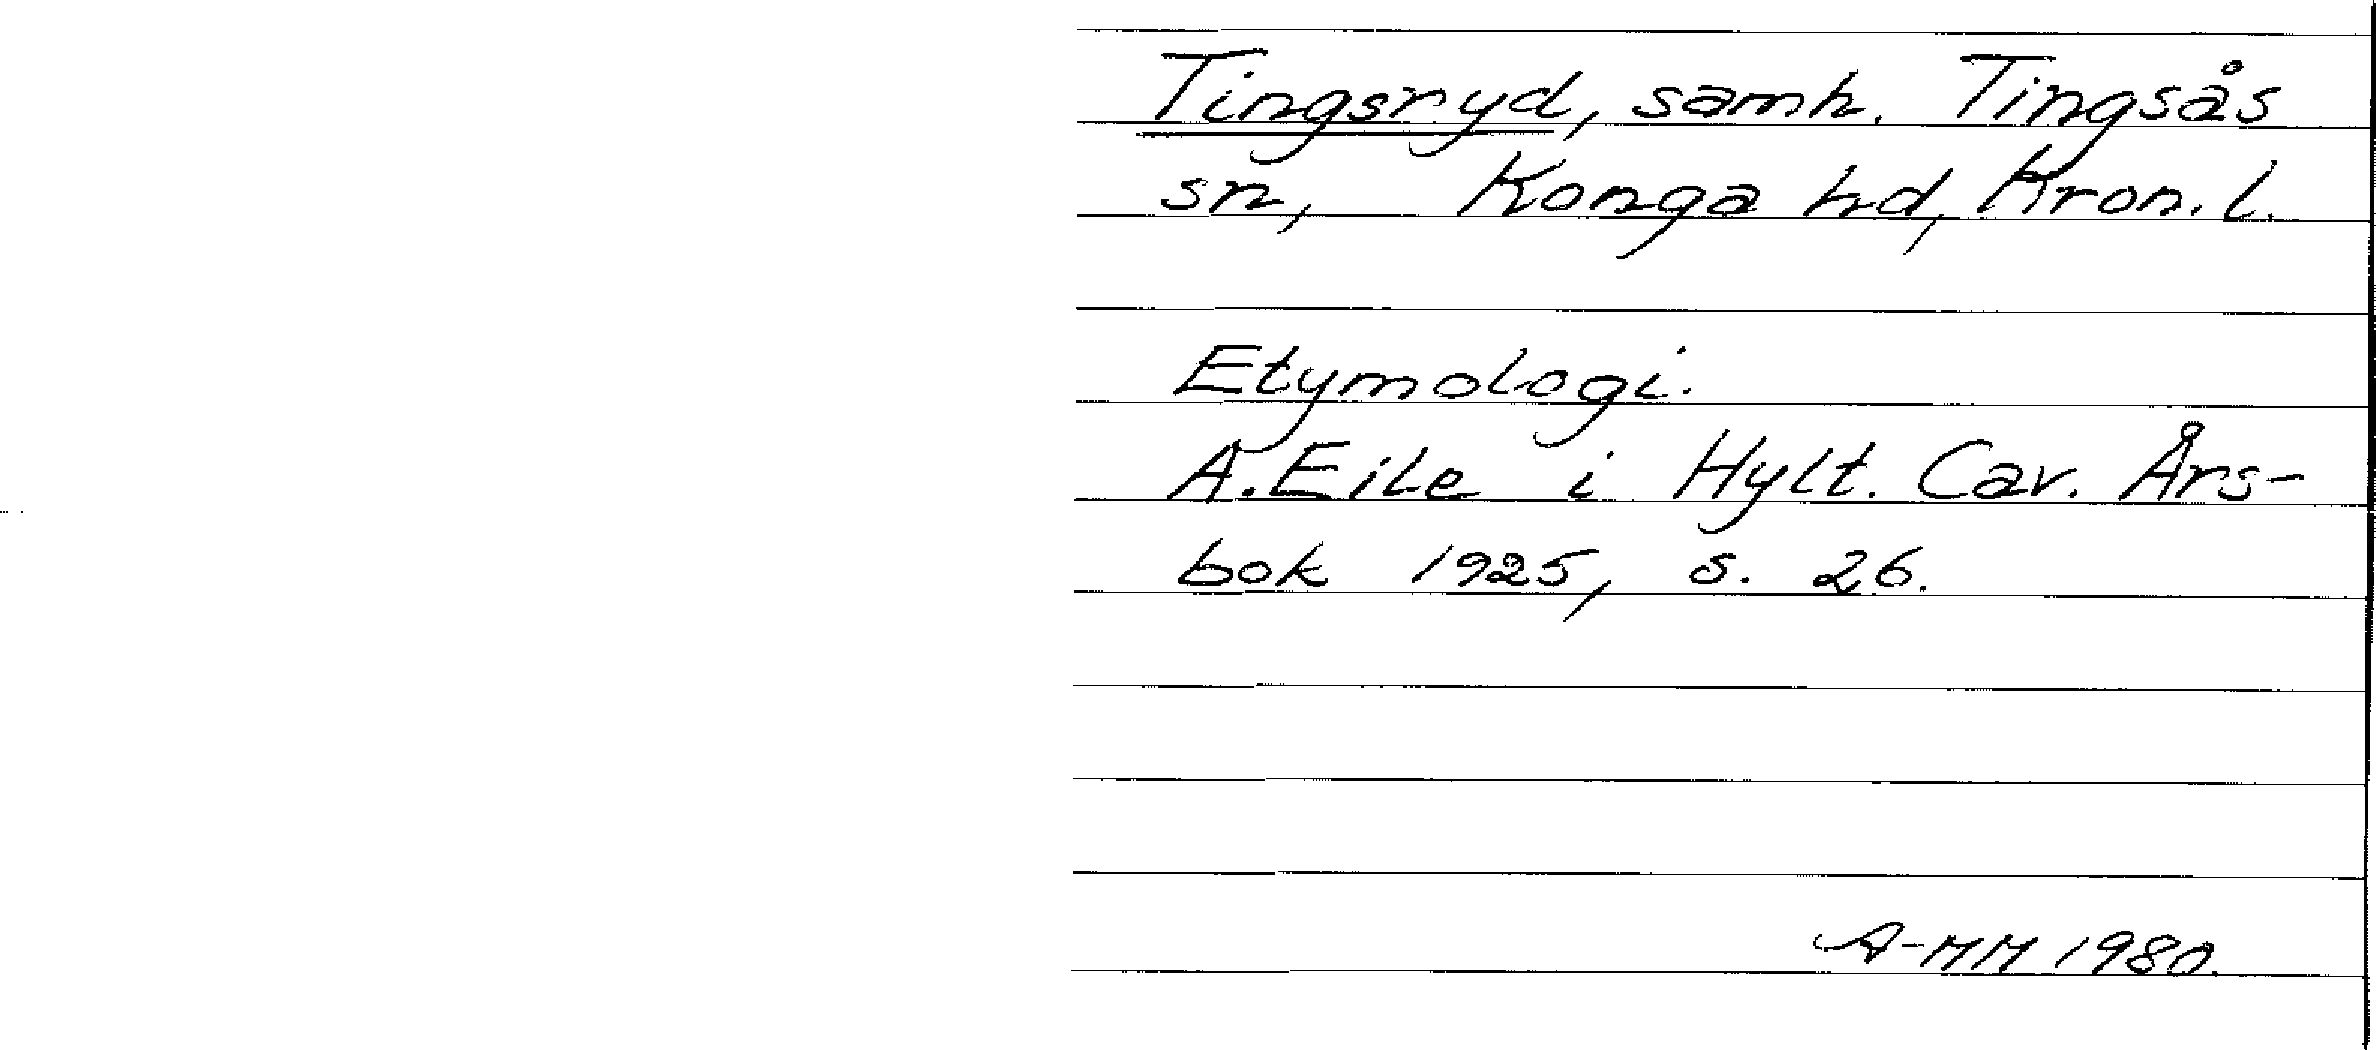 Tingsryd, samh. Tingsås
sn, Konga hd, Kron. l.
Etymologi.
A. Eile i Hylt. Cav. Års-
bok 1925, s. 26.
A-MM 1980.